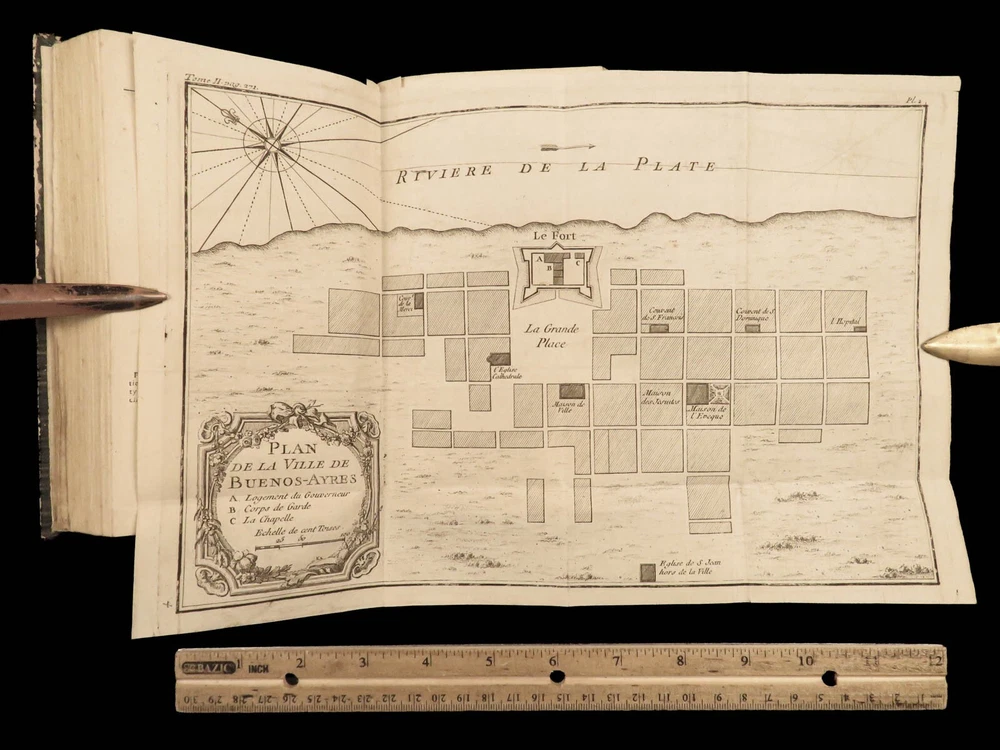 Tome II. pag.
Pl. 1
RIVIERE DE LA PLATE
Le Fort
A
B
C
La Grande
Place
de la
Merci
Couvent
de S. François
Couvent de S.
Dominique
l'Hopital
l'Eglise
Cathedrale
Maison de
Ville
Maison
des Jesuites
Maison de
l'Eveque
PLAN
DE LA VILLE DE
BUENOS-AYRES
A Logement du Gouverneur
B Corps de Garde
C La Chapelle
Echelle de cent Toises
50
Eglise de S. Jean
hors de la Ville
BAZIC
INCH
1 2 3 4 5 6 7 8 9 10 11 12
30 29 28 27 26 25 24 23 22 21 20 19 18 17 16 15 14 13 12 11 10 9 8 7 6 5 4 3 2 1